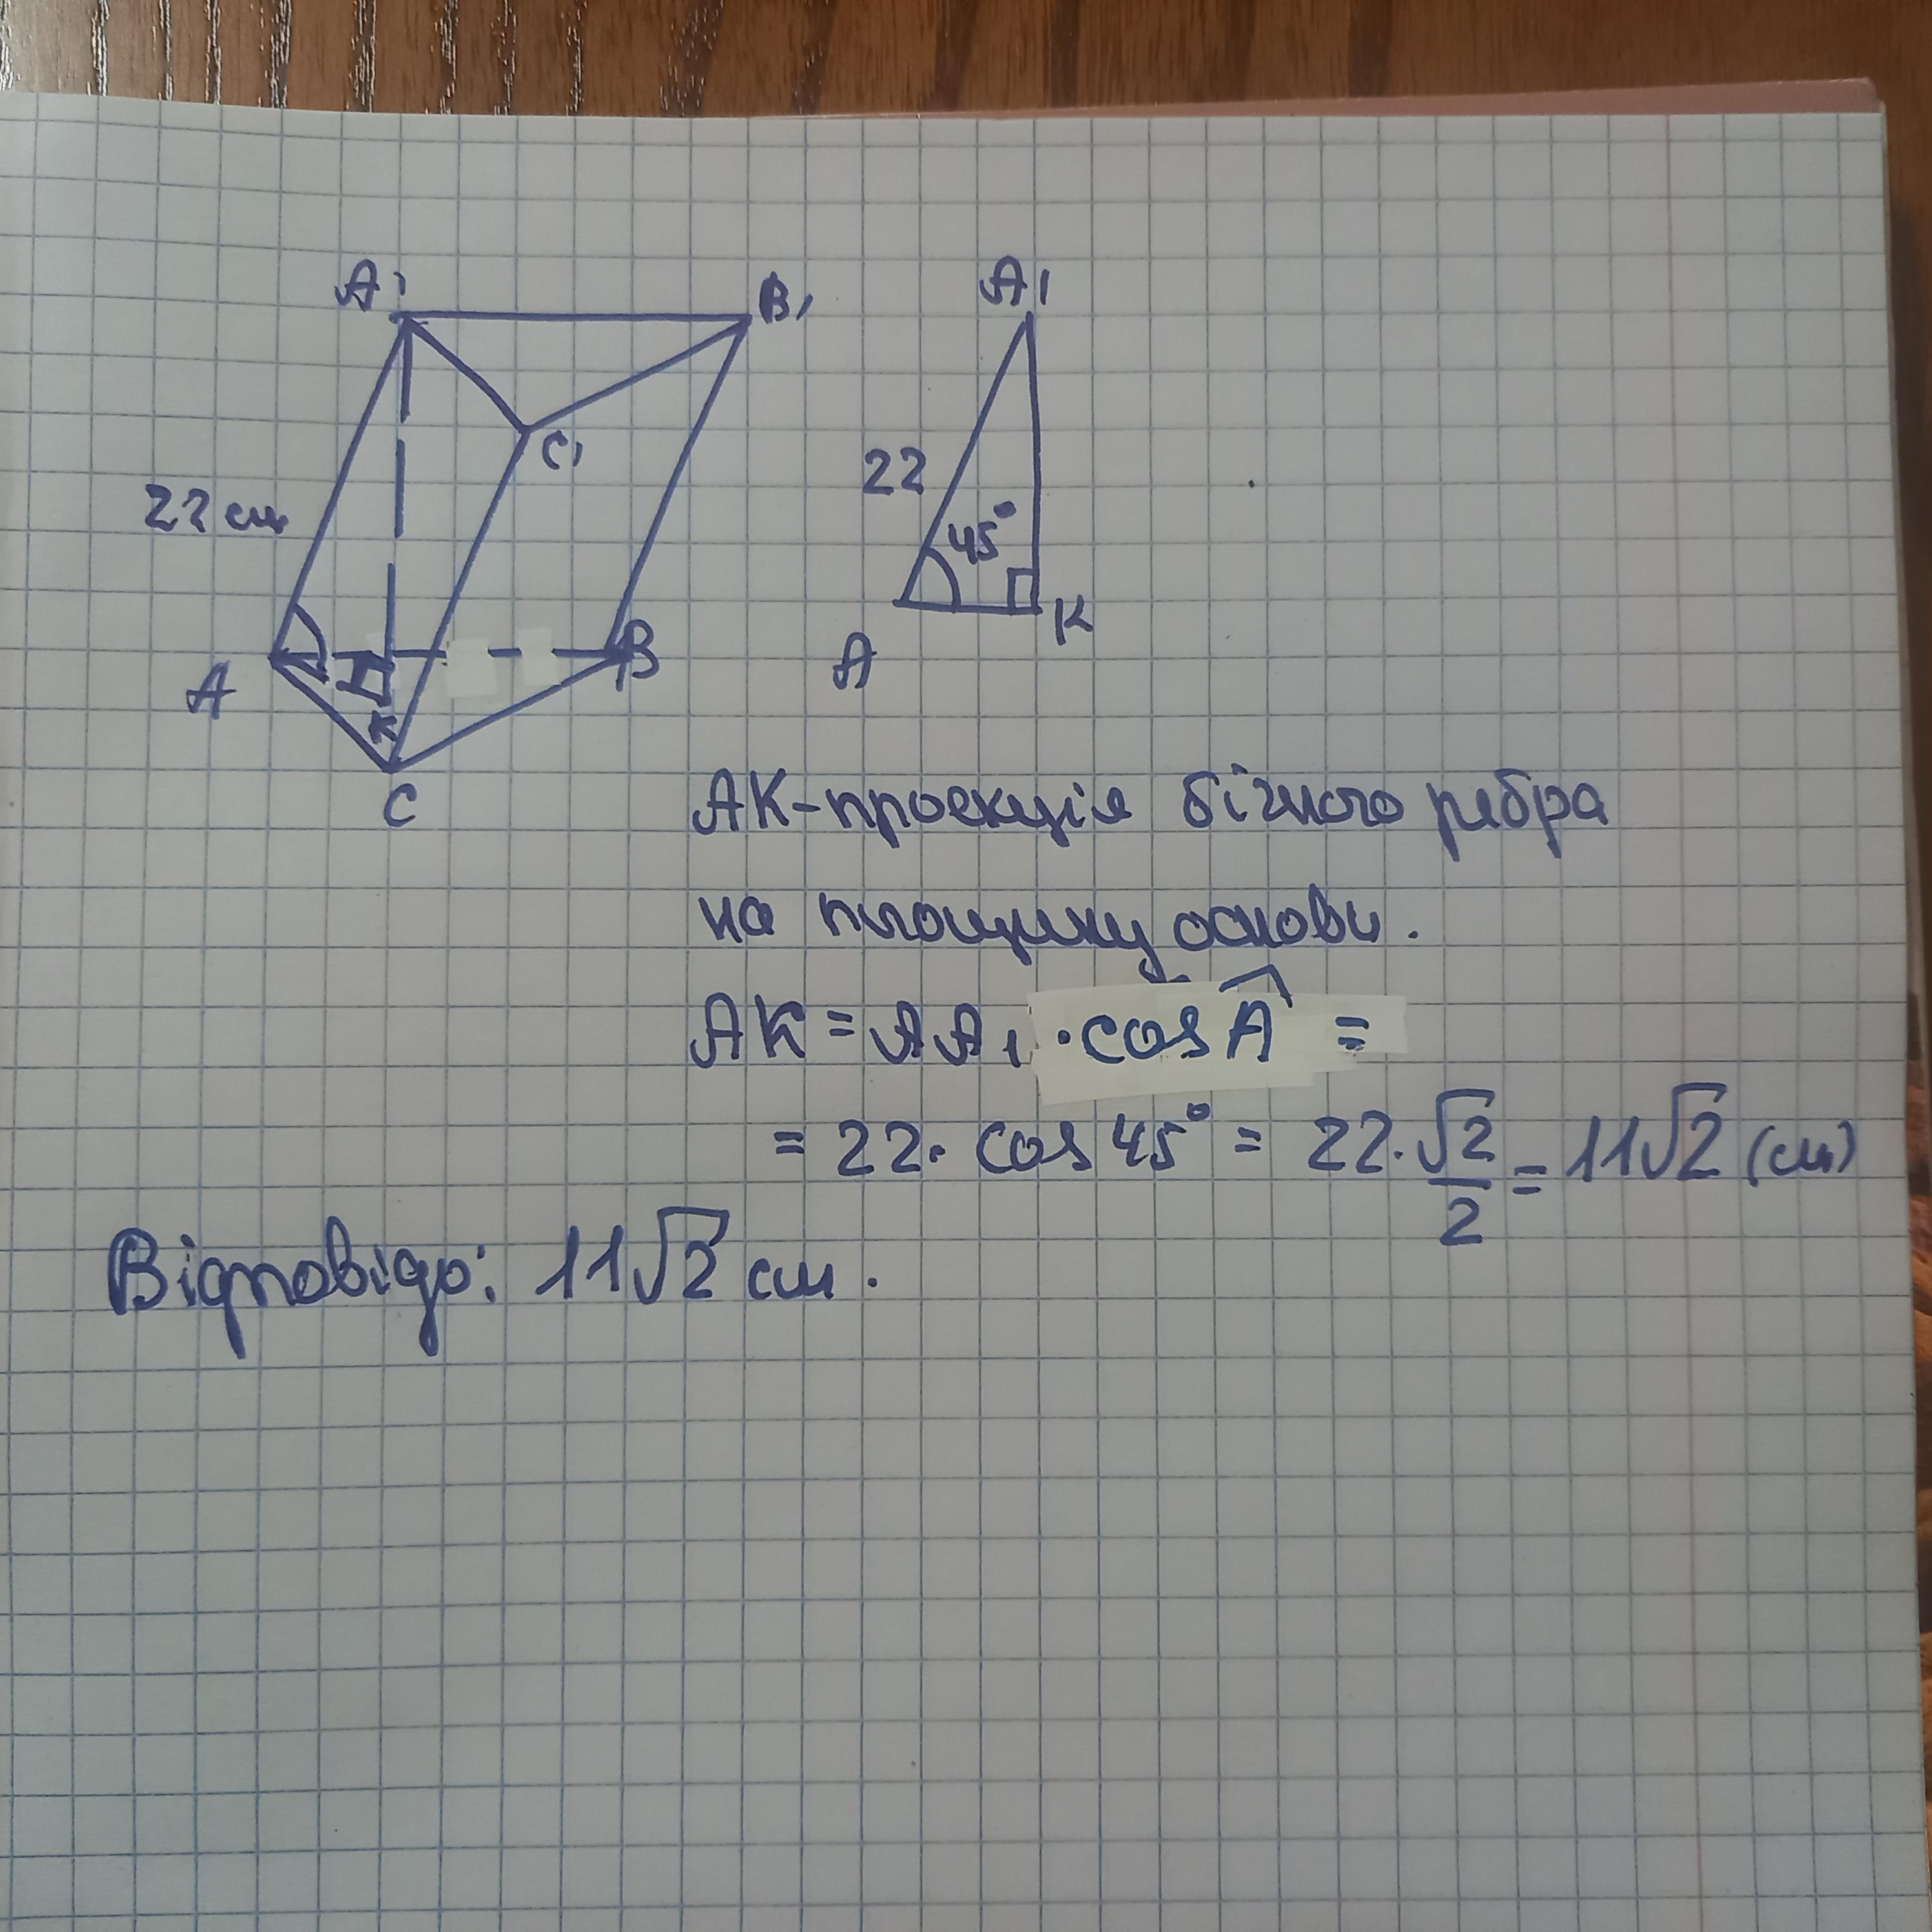 A₁ B₁ A₁
C₁
22 см 22 45°
A K B A K
C
AK-проекція бічного ребра
на площину основи.
AK = AA₁ · cos Â =
= 22 · cos 45° = 22 · √2/2 = 11√2 (см)
Відповідь: 11√2 см.